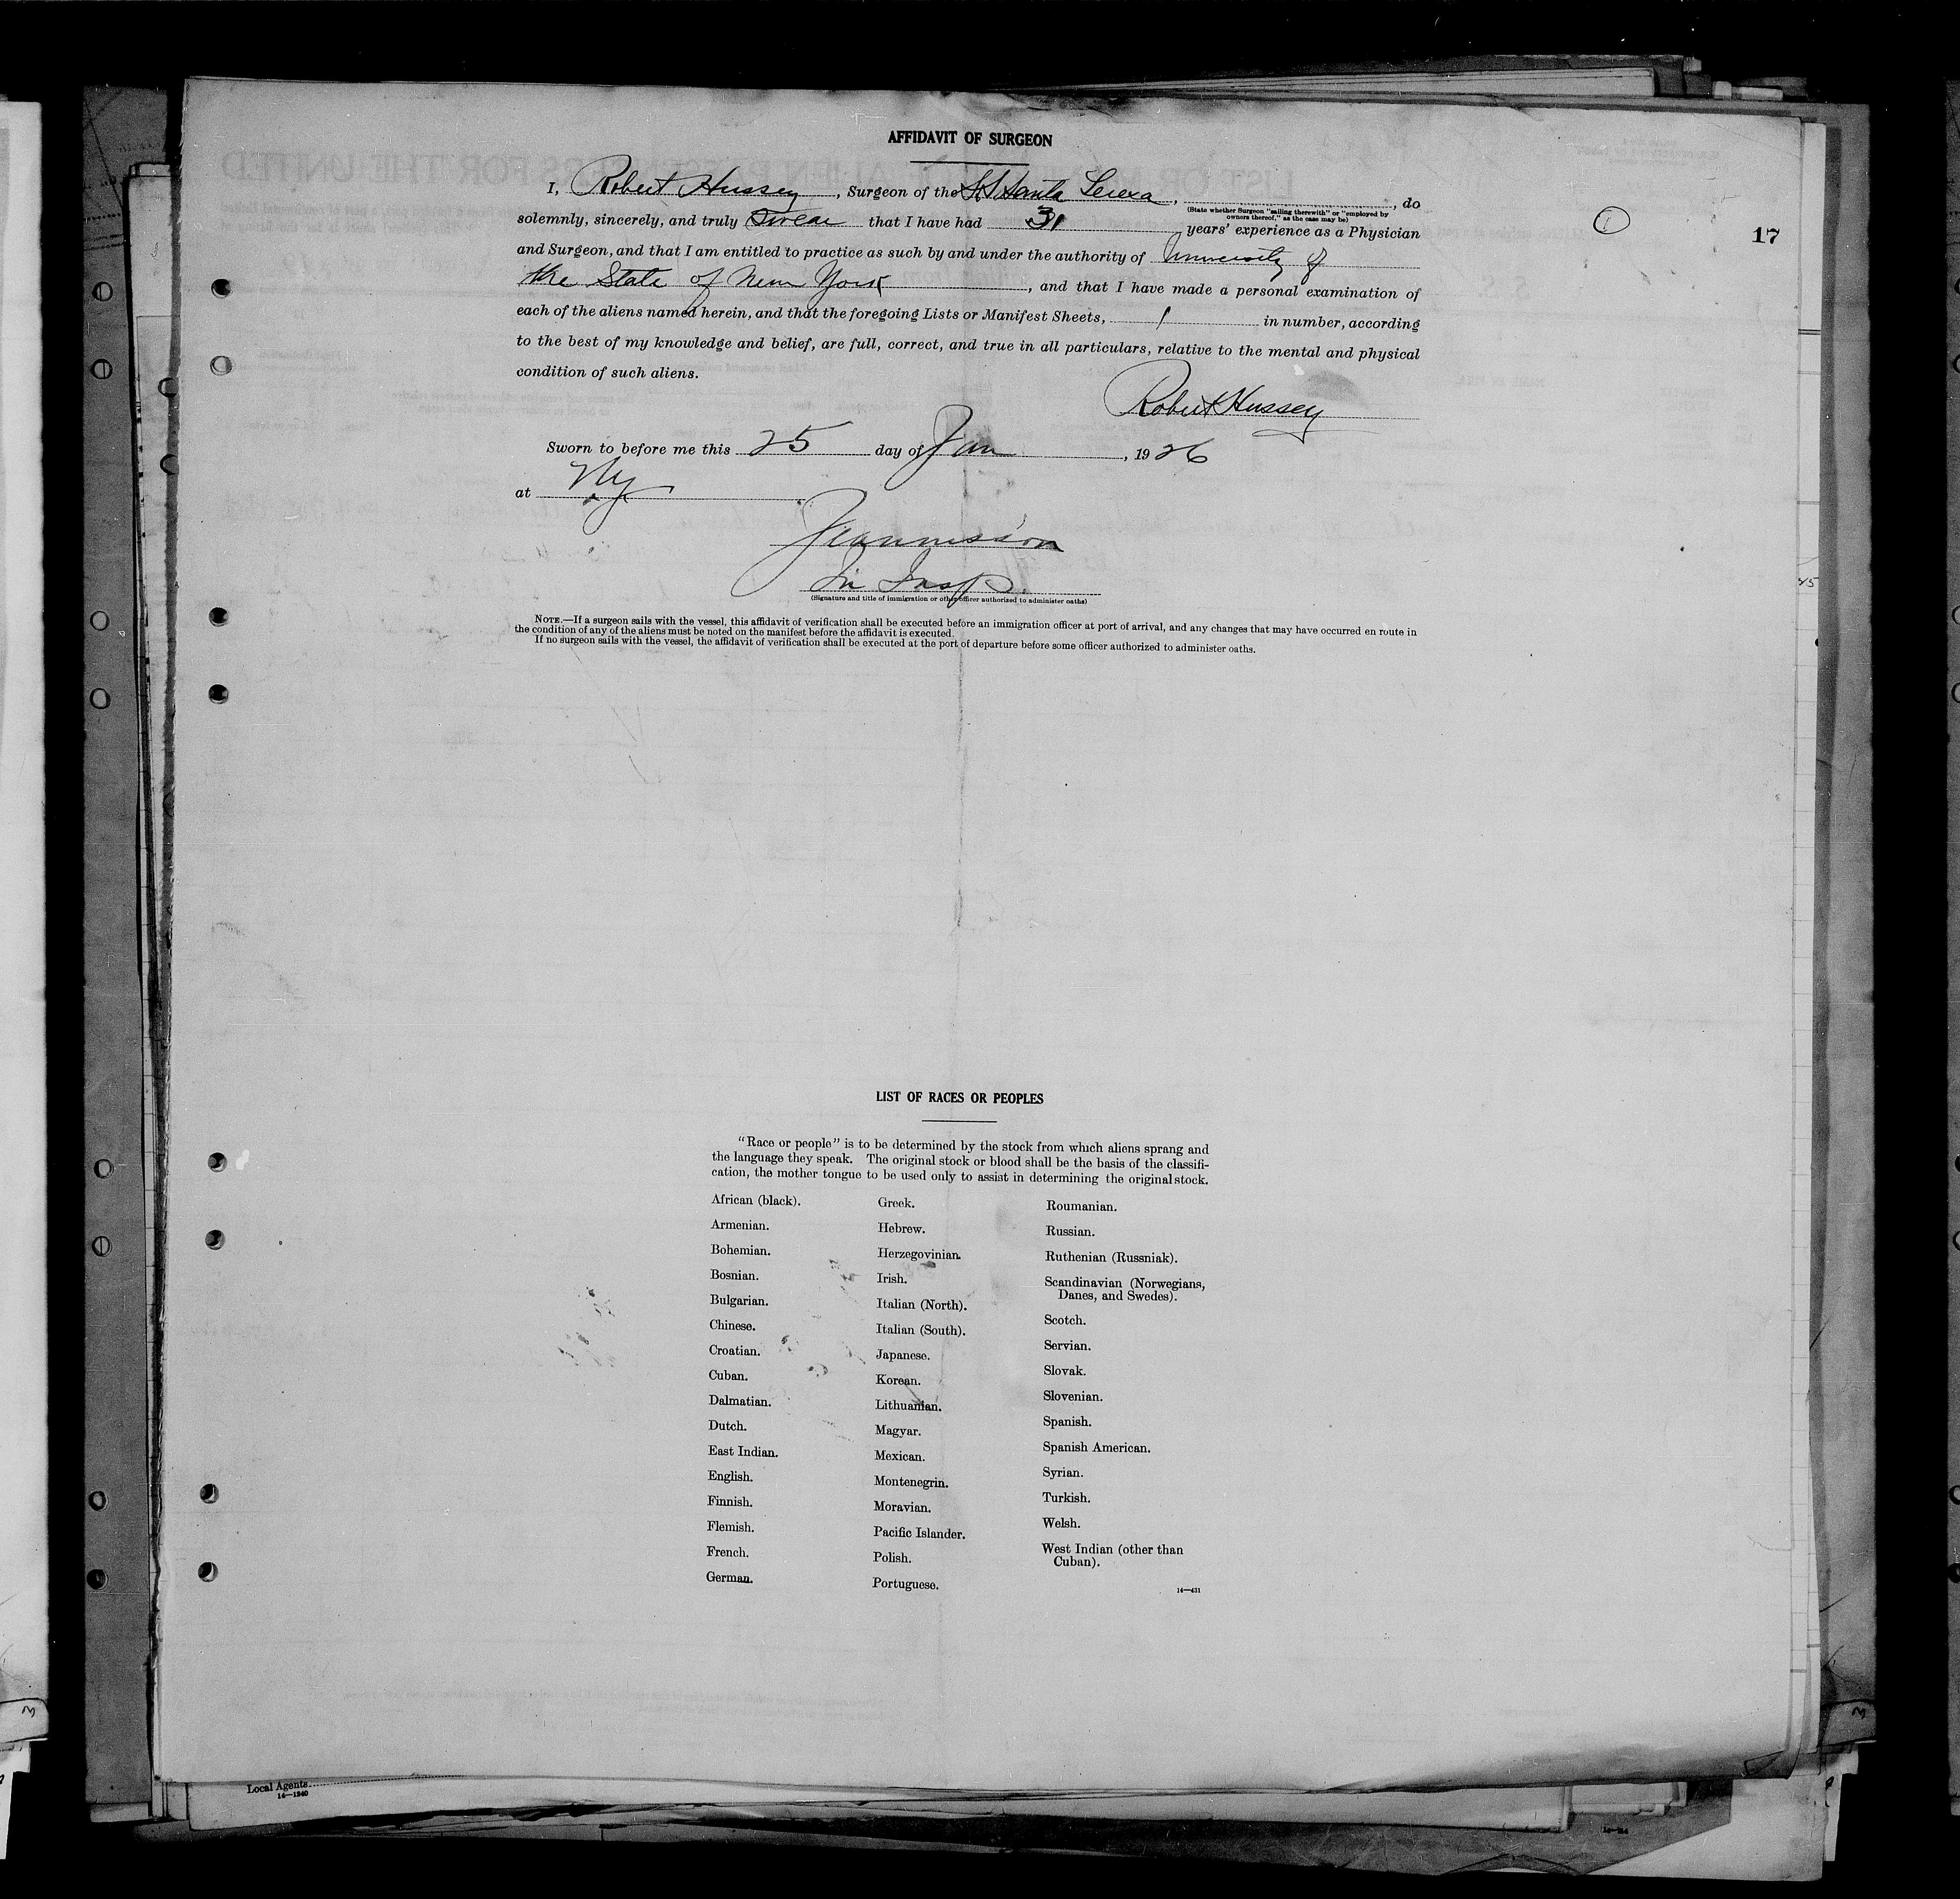 AFFIDAVIT OF SURGEON
17
I, Robert Hussey, Surgeon of the S.S. Santa Teresa, , do
(State whether Surgeon "sailing therewith" or "employed by owners thereof," as the case may be)
solemnly, sincerely, and truly swear that I have had 31 years' experience as a Physician
and Surgeon, and that I am entitled to practice as such by and under the authority of University of
the State of New York, and that I have made a personal examination of
each of the aliens named herein, and that the foregoing Lists or Manifest Sheets, 1 in number, according
to the best of my knowledge and belief, are full, correct, and true in all particulars, relative to the mental and physical
condition of such aliens.
Robert Hussey
Sworn to before me this 25 day of Jan, 1926
at NY
Insp.
(Signature and title of immigration or other officer authorized to administer oaths)
NOTE.—If a surgeon sails with the vessel, this affidavit of verification shall be executed before an immigration officer at port of arrival, and any changes that may have occurred en route in
the condition of any of the aliens must be noted on the manifest before the affidavit is executed.
If no surgeon sails with the vessel, the affidavit of verification shall be executed at the port of departure before some officer authorized to administer oaths.
LIST OF RACES OR PEOPLES
"Race or people" is to be determined by the stock from which aliens sprang and
the language they speak. The original stock or blood shall be the basis of the classifi-
cation, the mother tongue to be used only to assist in determining the original stock.
African (black).
Armenian.
Bohemian.
Bosnian.
Bulgarian.
Chinese.
Croatian.
Cuban.
Dalmatian.
Dutch.
East Indian.
English.
Finnish.
Flemish.
French.
German.
Greek.
Hebrew.
Herzegovinian.
Irish.
Italian (North).
Italian (South).
Japanese.
Korean.
Lithuanian.
Magyar.
Mexican.
Montenegrin.
Moravian.
Pacific Islander.
Polish.
Portuguese.
Roumanian.
Russian.
Ruthenian (Russniak).
Scandinavian (Norwegians,
Danes, and Swedes).
Scotch.
Servian.
Slovak.
Slovenian.
Spanish.
Spanish American.
Syrian.
Turkish.
Welsh.
West Indian (other than
Cuban).
14—431
Local Agents
14—1240